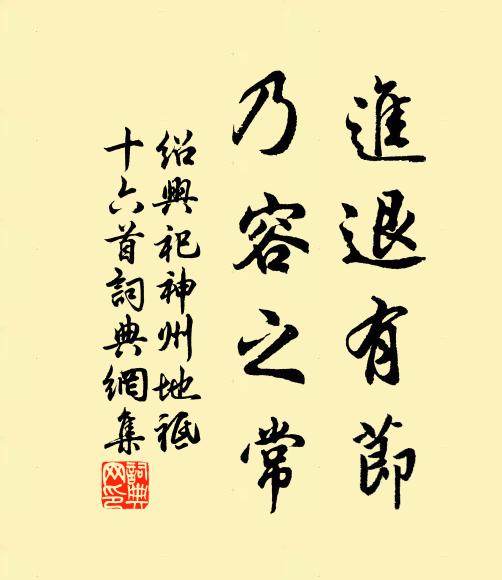 進退有節
乃容之常
紹興祀神州地祇
十六首詞典網集
詞典网印